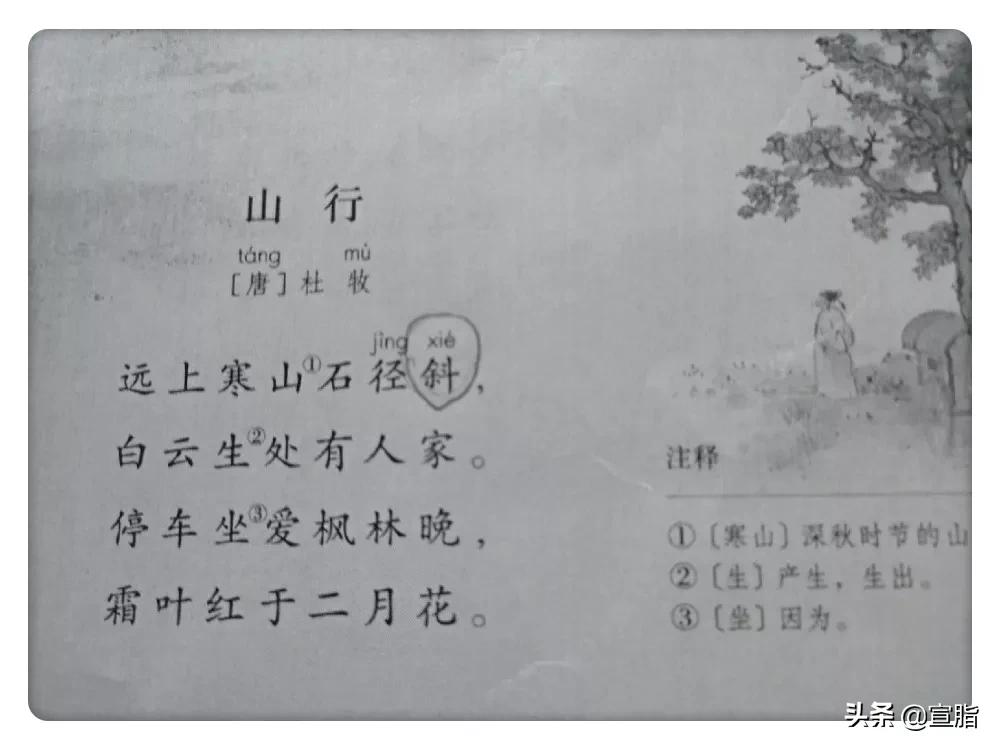 山行
táng mù
[唐]杜牧
jìng xié
远上寒山①石径斜，
白云生②处有人家。
停车坐③爱枫林晚，
霜叶红于二月花。
注释
①〔寒山〕深秋时节的山
②〔生〕产生，生出。
③〔坐〕因为。
头条 @宣脂